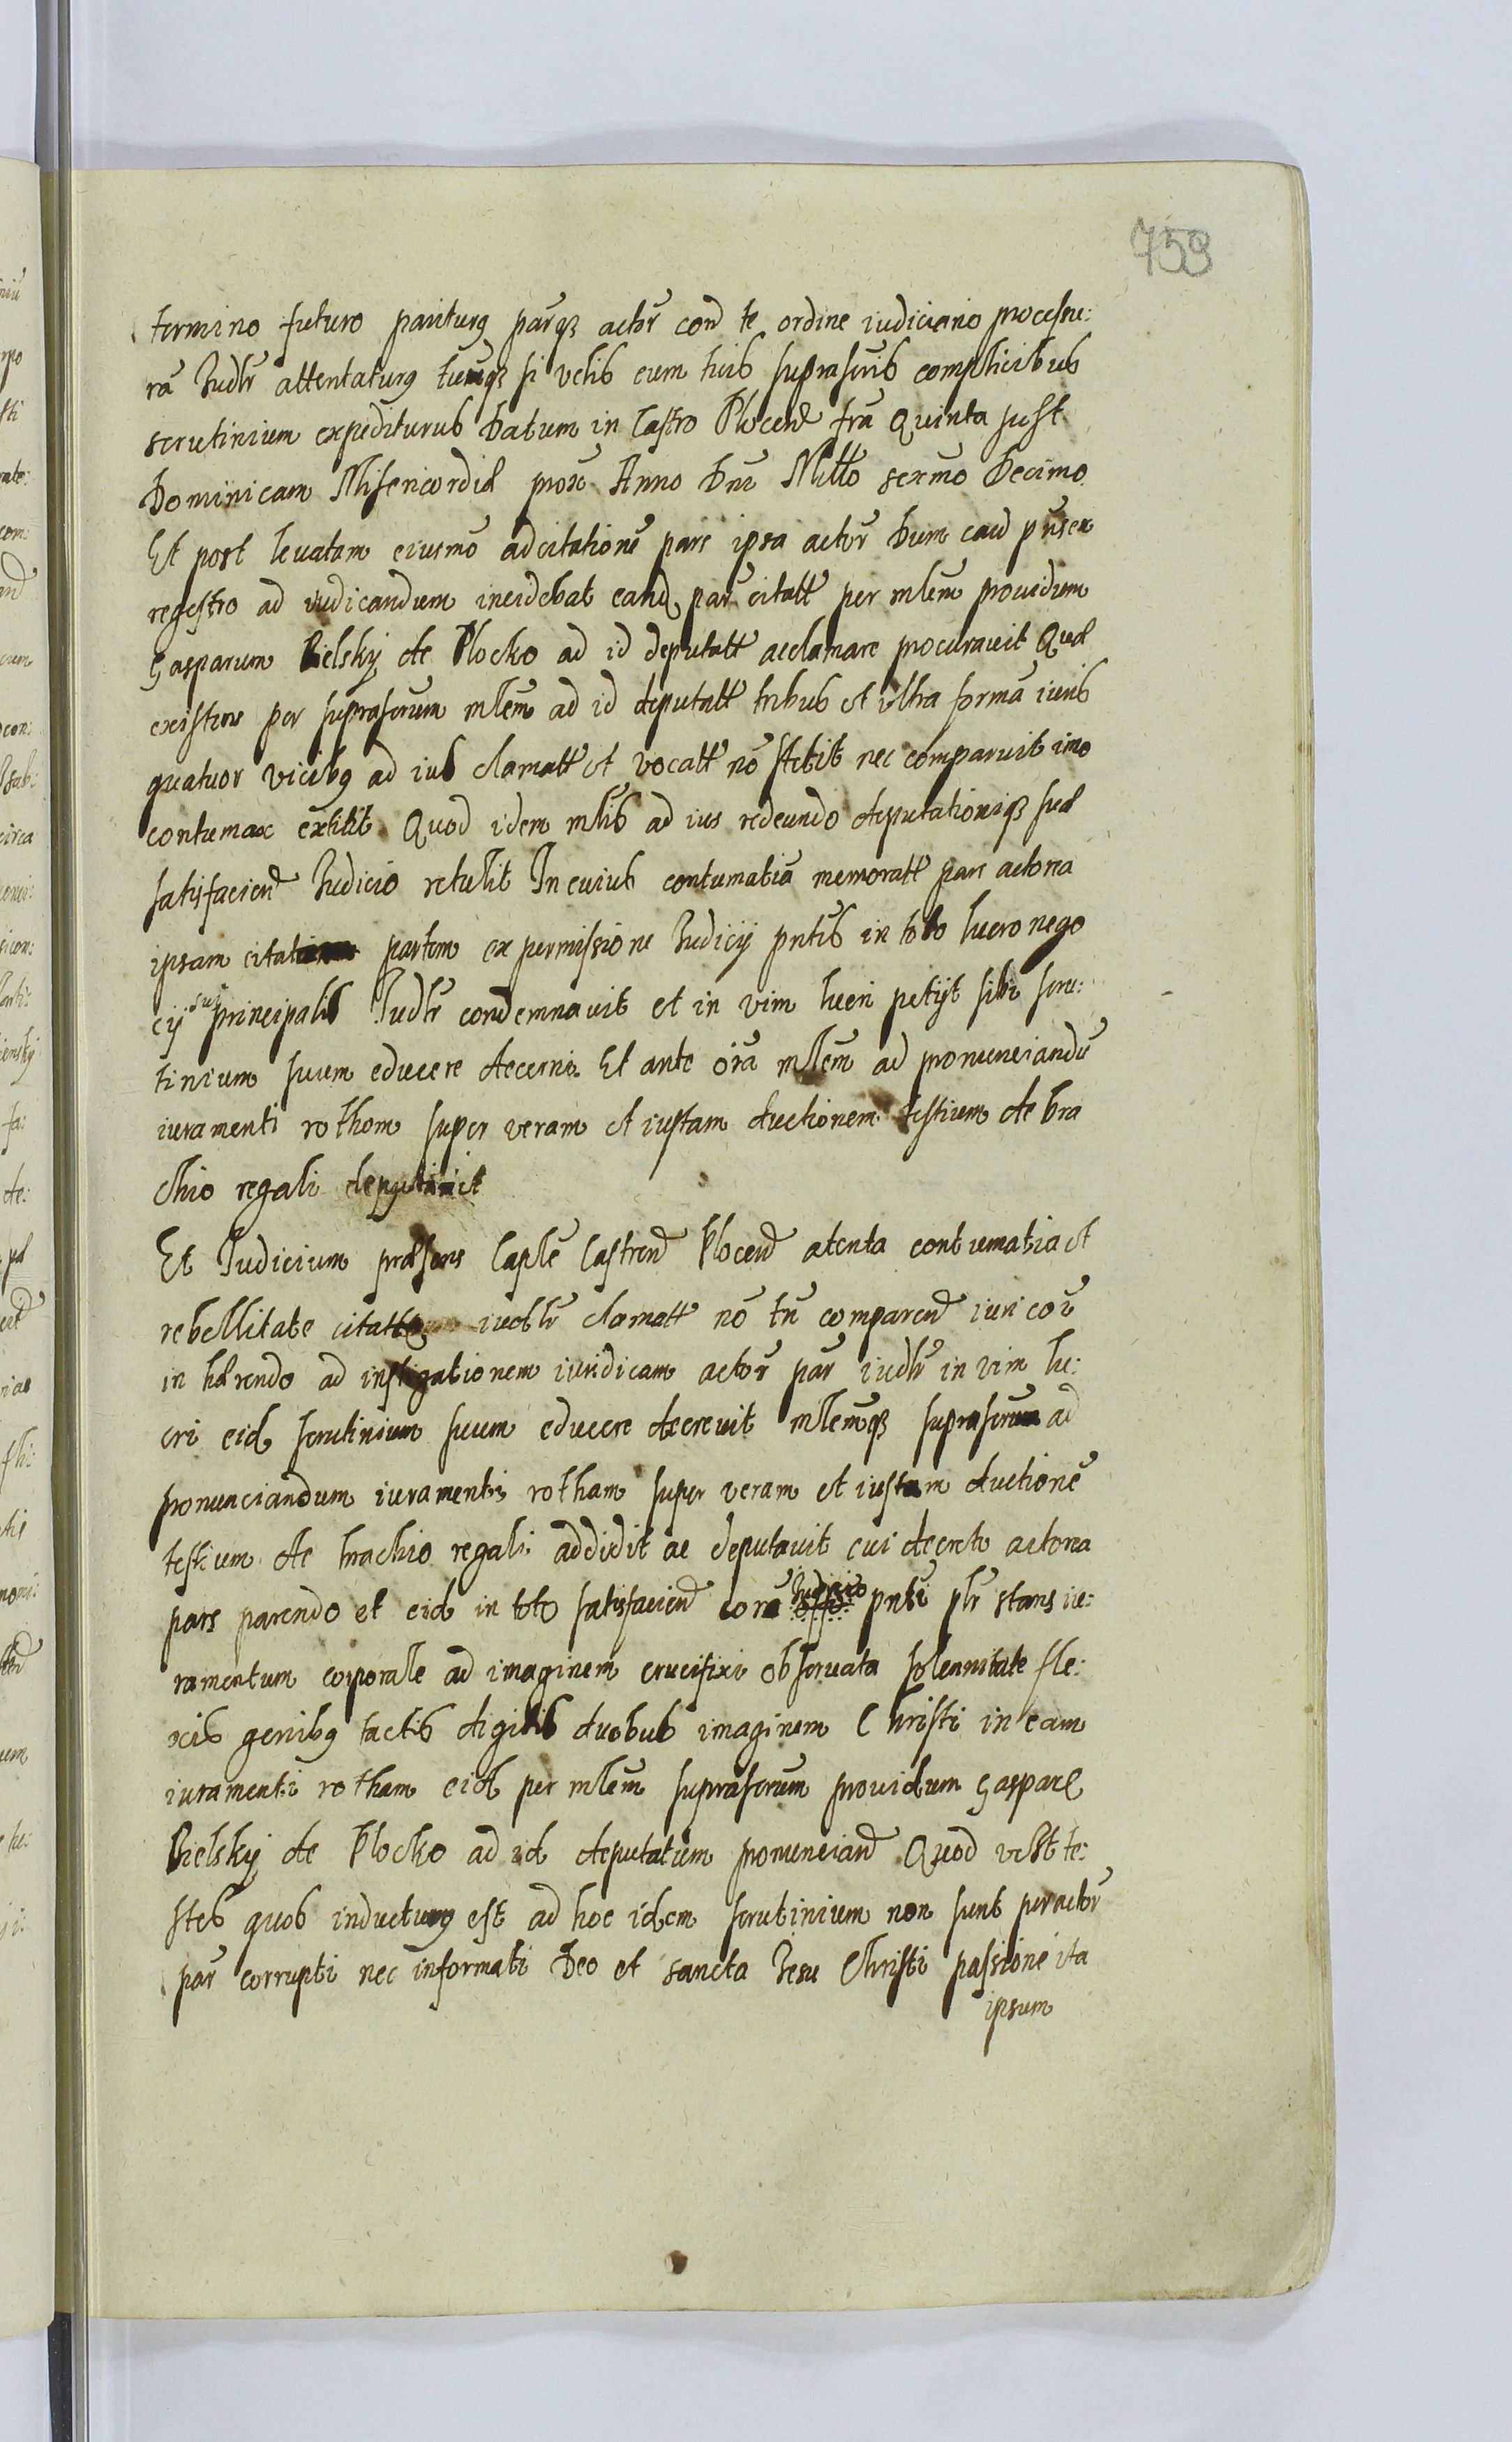 759
termino futuro pariturꝯ parqꝫ actor con te ordine iudiciario procesu:
rã Iudlr attentaturꝯ tuũqꝫ si velis cum tuis suprascris complicibus
scrutinium expediturus Datum in Castro Plocen fra Quinta post
Dominicam Misericordiæ prox Anno Dni Millo sexmo Decimo
Et post levatam eiusmo adcitationẽ pars ipsa actor Dum cau pnsex
regestro ad iudicandum incidebat eand par citatt per mlem providum
Gasparum Bielsky de Plocko ad id deputatt acclamare procuravit Quæ
existens per suprascrum mlem ad id deputatt tribus et ultra formã iuris
quatuor vicibꝯ ad ius clamatt et vocatt nõ stetit nec comparuit imo
contumax extitit Quod idem mlis ad ius redeundo deputationiqꝫ suæ
satisfaciend Iudicio retulit In cuius contumatiã memoratt pars actorea
ipsam citatam partem ex permissione Iudicij pntis in toto lucro nego
cij sui principalis Iudlr condemnavit et in vim lucri petijt sibi scru:
tinium suum educere decerni Et ante oĩa mlem ad pronunciandũ
iuramenti rotham super veram et iustam ductionem testium de bra
chio regali deputavit
Et Iudicium præsens Caple Castren Plocen atenta contumatia et
rebellitate citatt iudlr clamatt nõ tñ comparen iuri coi
in hærendo ad instigationem iuridicam actor par iudlr in vim lu:
cri eid scrutinium suum educere decrevit mlemqꝫ suprascrum ad
pronunciandum iuramenti rotham super veram et iustam ductionẽ
testium de brachio regali addidit ac deputavit cui decreto actorea
pars parendo et eid in toto satisfaciend corã Iudicio offo pnti plr stans iu:
ramentum corporale ad imaginem crucifixi observata solennitate fle:
xis genibꝯ tactis digitis duobus imaginem Christi in eam
iuramenti rotham eid per mlem suprascrum providum Gasparẽ
Bielsky de Plocko ad id deputatum pronunciand Quod isti te:
stes quos inducturꝯ est ad hoc idem scrutinium non sunt per actor
par corrupti nec informati Deo et sancta Iesu Christi passione ita
ipsum